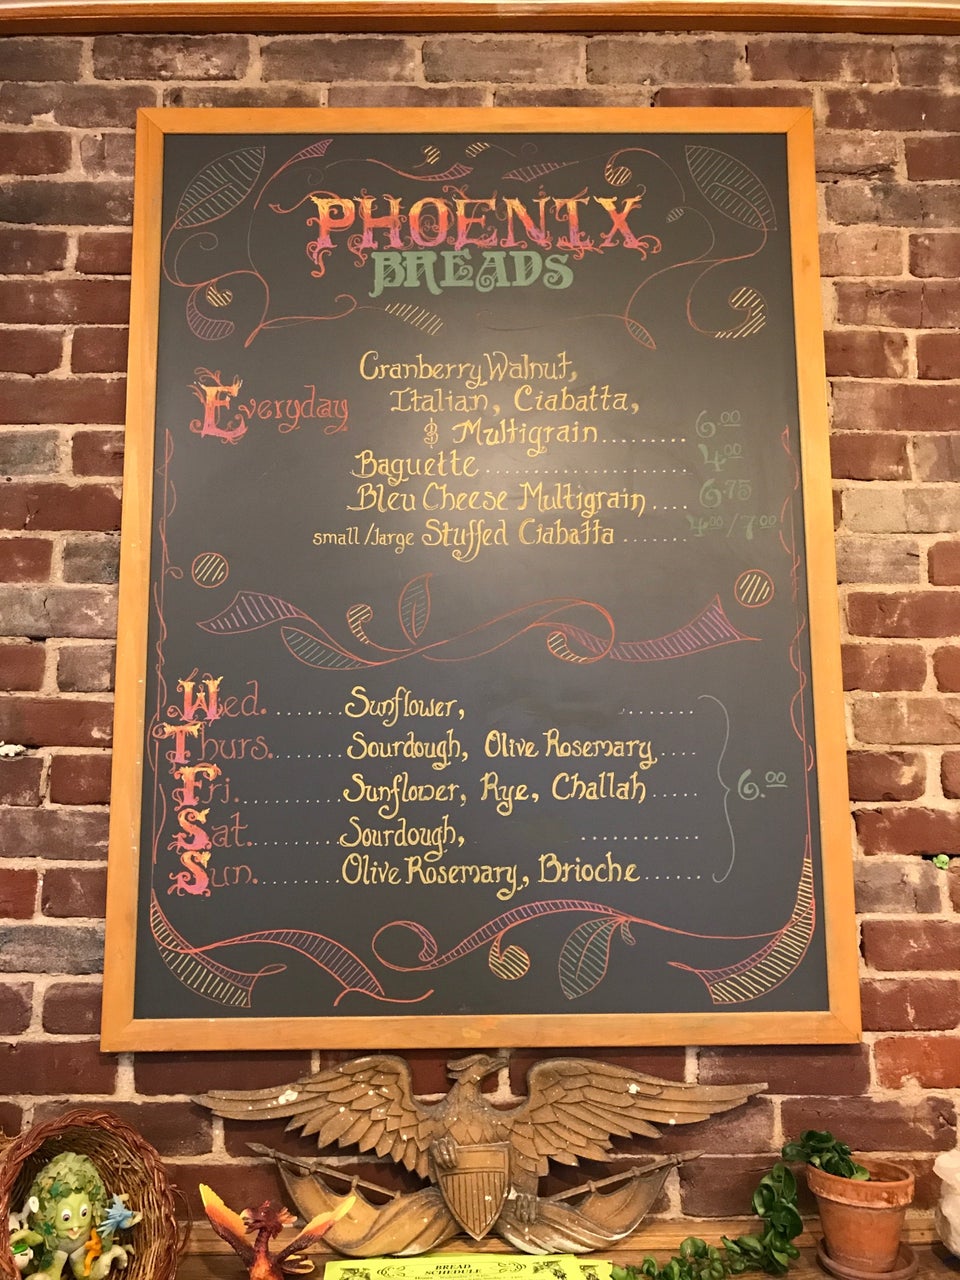 PHOENIX
BREADS
Cranberry Walnut,
Everyday Italian, Ciabatta,
& Multigrain......... 6.00
Baguette.......................... 4.00
Bleu Cheese Multigrain .... 6.75
small/large Stuffed Ciabatta ....... 4.00/7.00
Wed. ....... Sunflower, .......
Thurs. ....... Sourdough, Olive Rosemary .....
Fri. .......... Sunflower, Rye, Challah ..... 6.00
Sat. ......... Sourdough, ...........
Sun. ......... Olive Rosemary, Brioche ......
BREAD
SCHEDULE